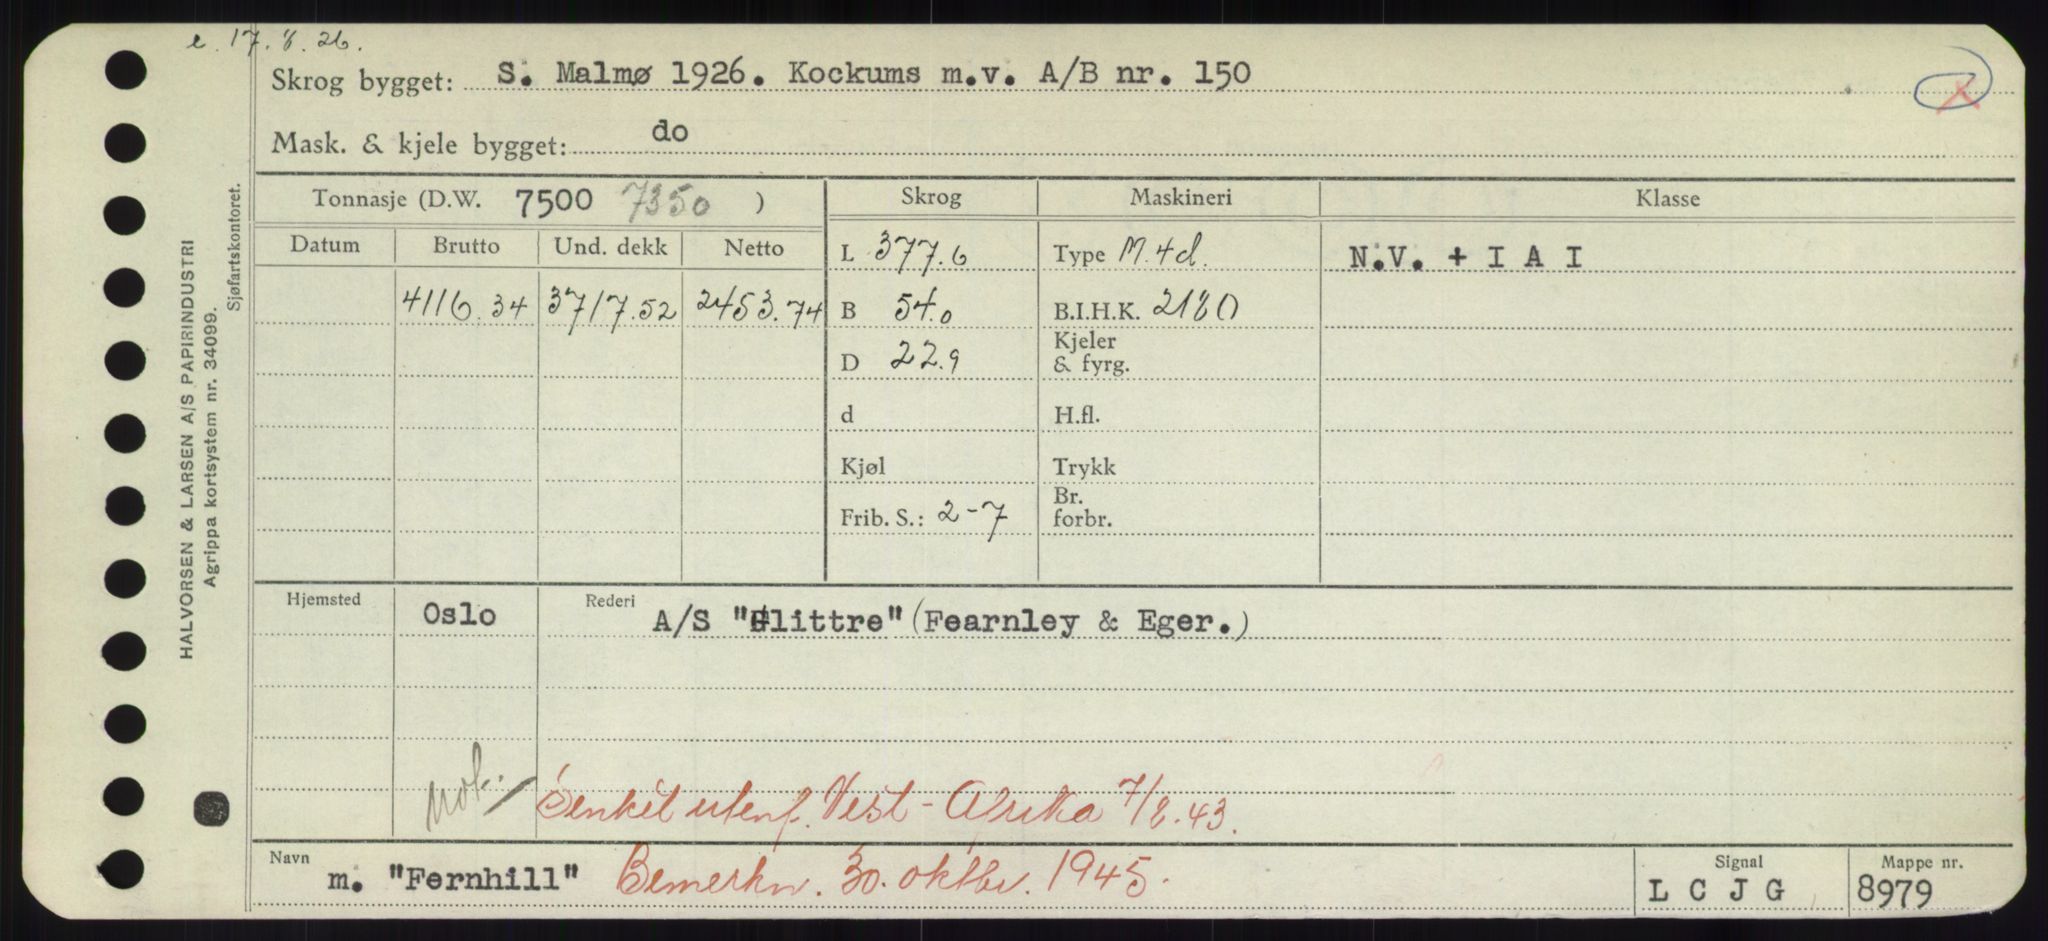 e. 17.8.26.
Skrog bygget: S. Malmø 1926. Kockums m.v. A/B nr. 150
Mask. & kjele bygget: do
Tonnasje (D.W. 7500 7350 )
Skrog Maskineri Klasse
Datum Brutto Und. dekk Netto
L 377.6 Type M.4d. N.V. + I A I
4116.34 3717.52 2453.74 B 54.0 B.I.H.K. 2180
D 22.9 Kjeler & fyrg.
d H.fl.
Kjøl Trykk
Frib. S.: 2-7 Br. forbr.
Hjemsted Oslo Rederi A/S "Glittre" (Fearnley & Eger.)
not. Senket utenf. Vest-Afrika 7/8.43.
Navn m. "Fernhill" Bemerkn. 30. oktbr. 1945.
Signal L C J G
Mappe nr. 8979
HALVORSEN & LARSEN A/S PAPIRINDUSTRI
Agrippa kortsystem nr. 34099.
Sjøfartskontoret.